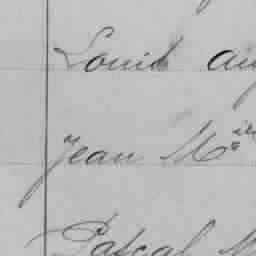 Louis Au
Jean M
Pascal M